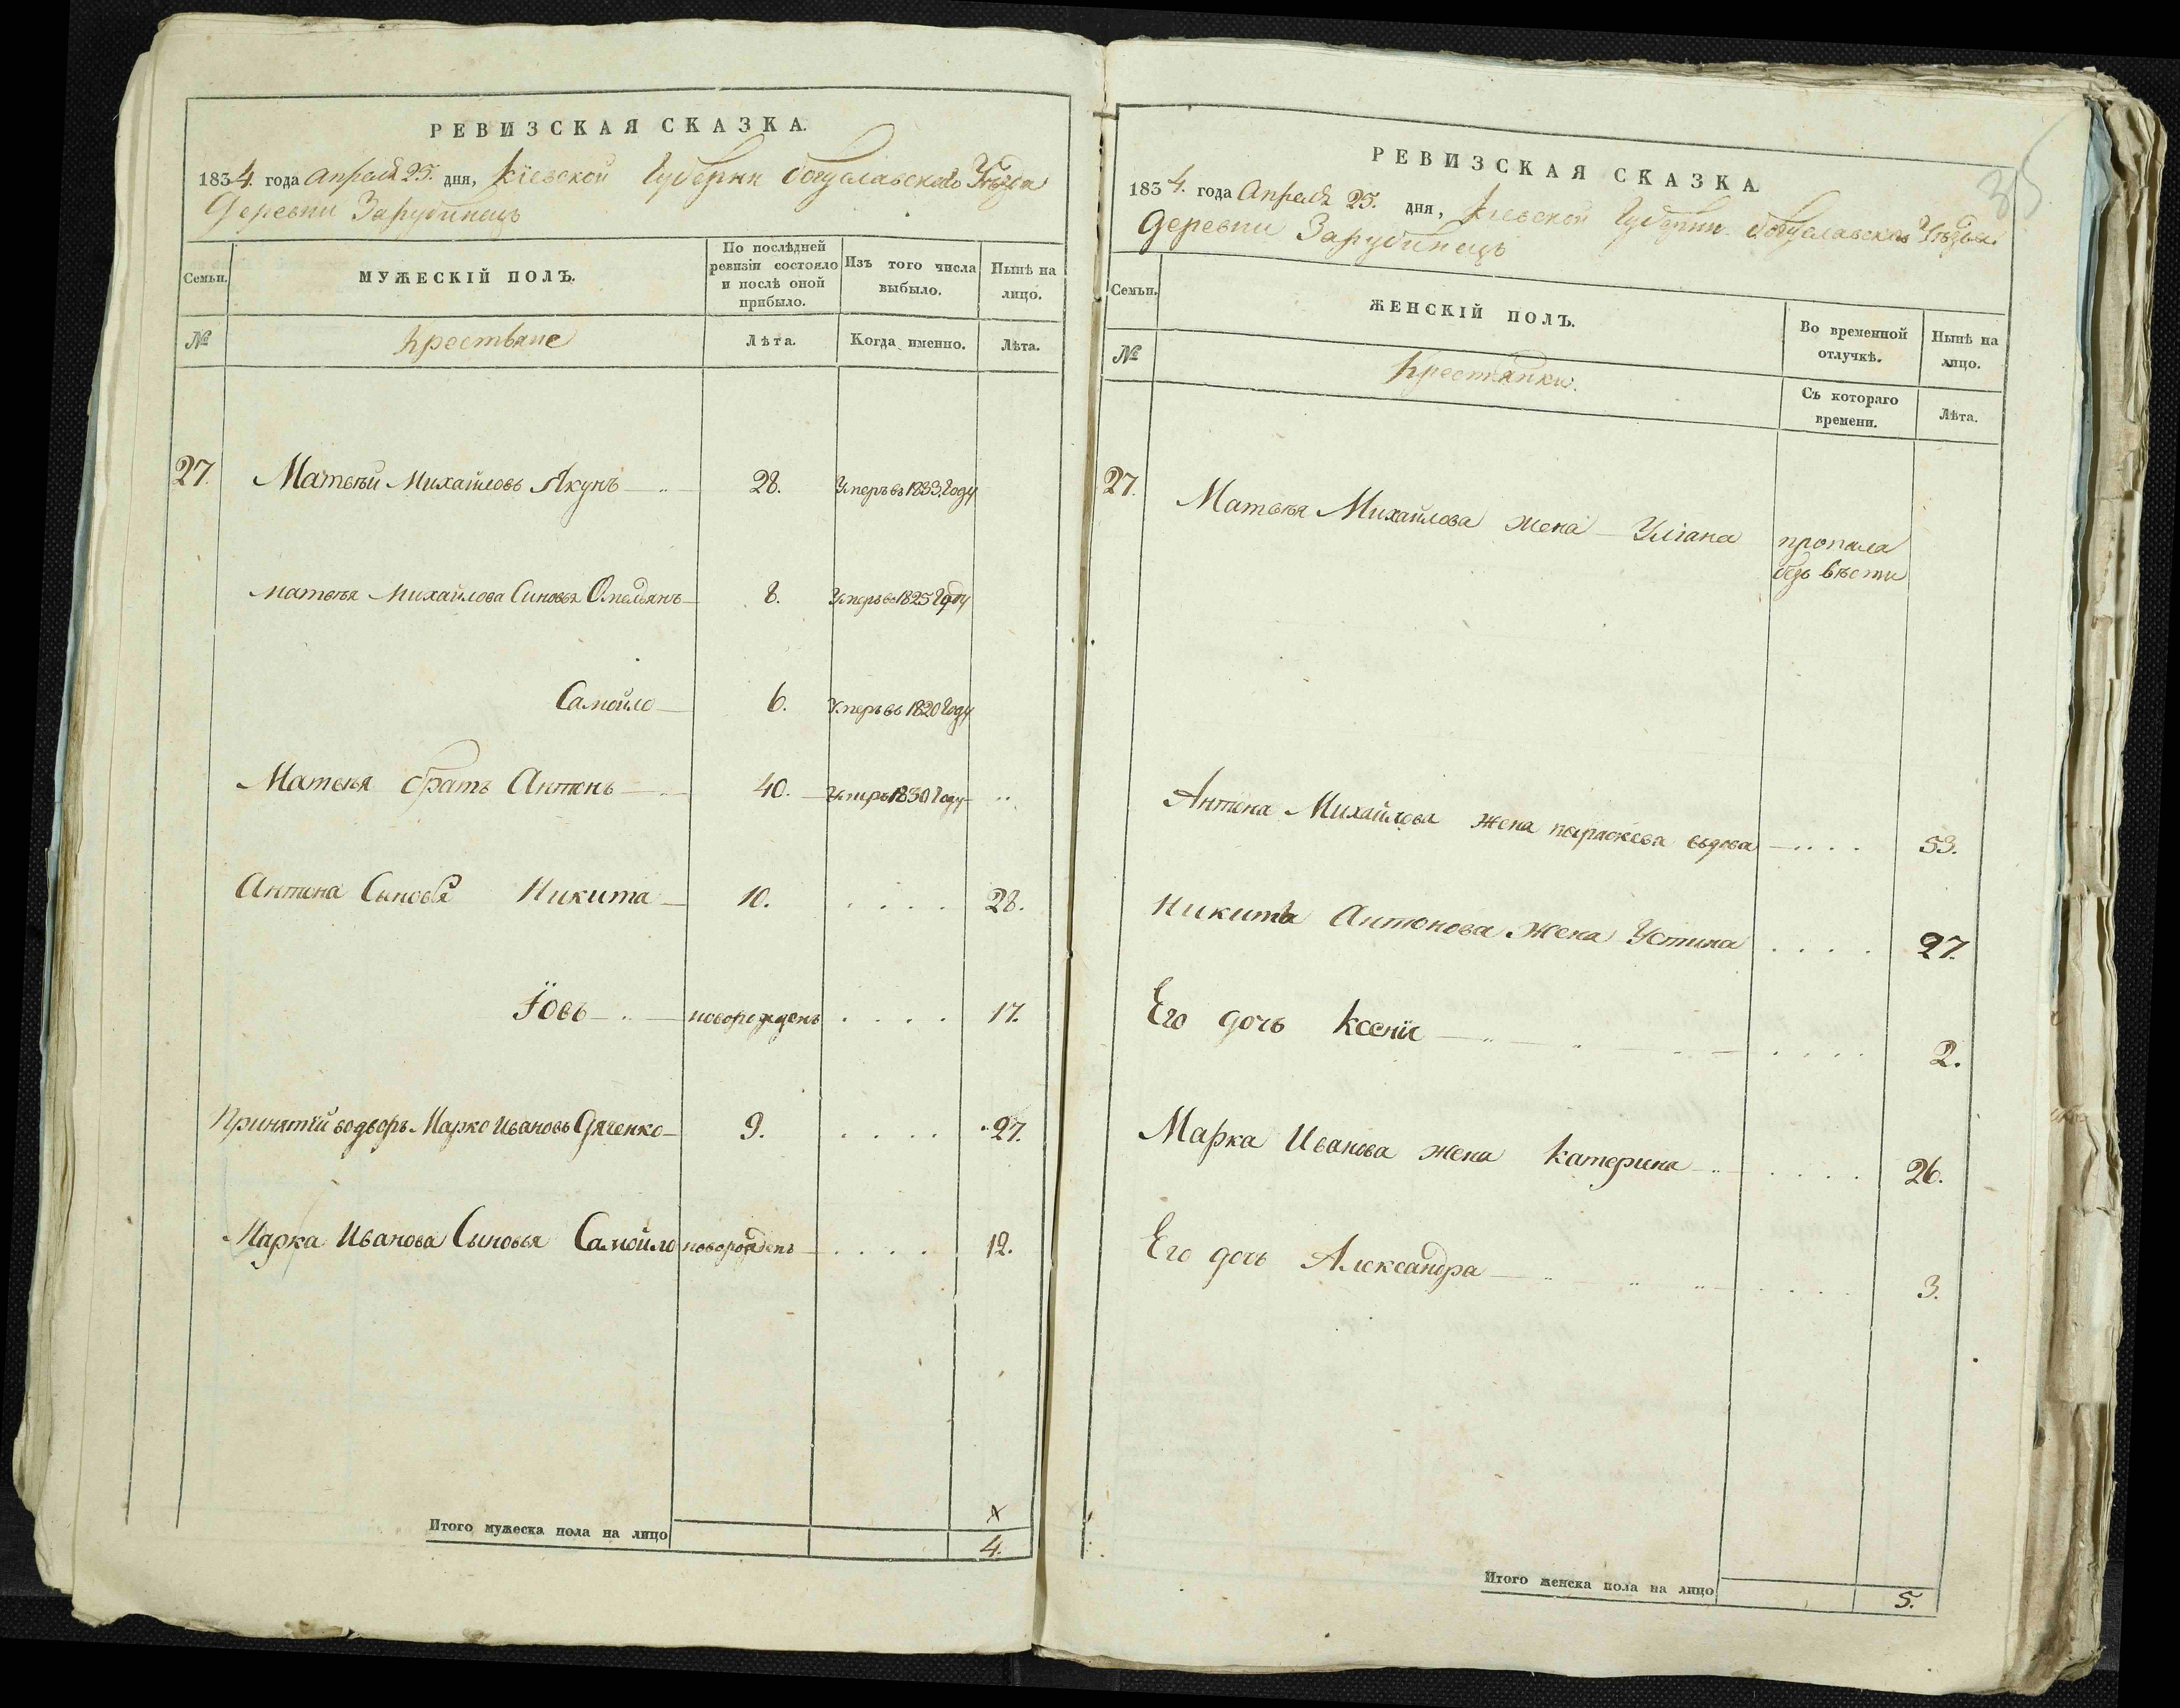 РЕВИЗСКАЯ СКАЗКА.
1834. года Апреля 25. дня, Кіевской Губерніи Богуславскаго Уѣзда
Деревни Зарубинецъ
Семьи.
МУЖЕСКІЙ ПОЛЪ.
По послѣдней ревизіи состояло и послѣ оной прибыло.
Изъ того числа выбыло.
Нынѣ на лицо.
№
Крестьяне
Лѣта.
Когда именно.
Лѣта.
27. Матвѣй Михайловъ Якунъ 28. Умеръ въ 1833 Году
Матвѣя Михайлова Синовья Омельянъ 8. Умеръ въ 1825 Году
Самойло 6. Умеръ въ 1820 Году
Матвѣя братъ Антонъ 40. Умеръ 1830 Году
Антона Сыновья Никита 10. . . . . 28.
Іовъ новорожденъ . . . . 17.
Принятій водворъ Марко Ивановъ Дяченко 9. . . . . 27.
Марка Иванова Сыновья Самойло новорожденъ . . . . 12.
х
Итого мужеска пола на лицо 4.
35
РЕВИЗСКАЯ СКАЗКА.
1834. года Апреля 25. дня, Кіевской Губерніи Богуславскаго Уѣзда.
Деревни Зарубинецъ
Семьи.
ЖЕНСКІЙ ПОЛЪ.
Во временной отлучкѣ.
Нынѣ на лицо.
№
Крестянки.
Съ котораго времени.
Лѣта.
27. Матвѣя Михайлова жена Уліана пропала
безъ вѣсти
Антона Михайлова жена параскева вдова . . . 53.
Никиты Антонова Жена Устина . . . . 27.
Его дочь Ксенія . . . . 2.
Марка Иванова жена Катерина . . . . 26.
Его дочь Александра . . . . 3.
Итого женска пола на лицо 5.